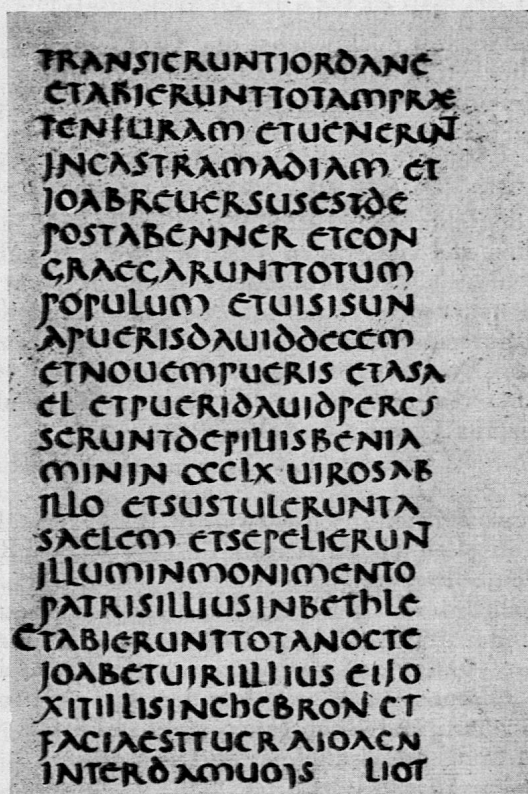 TRANSIERUNTIORDANE
ETABIERUNTTOTAMPRAE
TENSURAM ETUENERUNT
INCASTRAMADIAM ET
IOABREUERSUSESTDE
POSTABENNER ETCON
GRAEGARUNTTOTUM
POPULUM ETUISISUN
APUERISDAUIDDECEM
ETNOUEMPUERIS ETASA
EL ETPUERIDAUIDPERCS
SERUNTDEFILIISBENIA
MININ CCCLX UIROSAB
ILLO ETSUSTULERUNTA
SAELEM ETSEPELIERUN
ILLUMINMONIMENTO
PATRISILLIUSINBETHLE
ETABIERUNTTOTANOCTE
IOABETUIRIILLIUS
XITILLISINCHEBRON ET